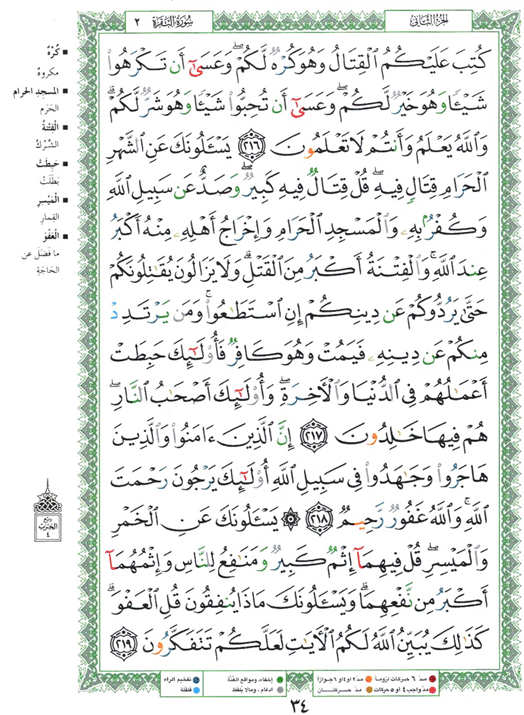 الجزء الثاني
سورة البقرة
٢
كُتِبَ عَلَيْكُمُ الْقِتَالُ وَهُوَ كُرْهٌ لَّكُمْ ۖ وَعَسَىٰٓ أَن تَكْرَهُوا۟
شَيْـًٔا وَهُوَ خَيْرٌ لَّكُمْ ۖ وَعَسَىٰٓ أَن تُحِبُّوا۟ شَيْـًٔا وَهُوَ شَرٌّ لَّكُمْ ۗ
وَاللَّهُ يَعْلَمُ وَأَنتُمْ لَا تَعْلَمُونَ ٢١٦ يَسْـَٔلُونَكَ عَنِ الشَّهْرِ
الْحَرَامِ قِتَالٍ فِيهِ ۖ قُلْ قِتَالٌ فِيهِ كَبِيرٌ ۖ وَصَدٌّ عَن سَبِيلِ اللَّهِ
وَكُفْرٌۢ بِهِۦ وَالْمَسْجِدِ الْحَرَامِ وَإِخْرَاجُ أَهْلِهِۦ مِنْهُ أَكْبَرُ
عِندَ اللَّهِ ۚ وَالْفِتْنَةُ أَكْبَرُ مِنَ الْقَتْلِ ۗ وَلَا يَزَالُونَ يُقَـٰتِلُونَكُمْ
حَتَّىٰ يَرُدُّوكُمْ عَن دِينِكُمْ إِنِ اسْتَطَـٰعُوا۟ ۚ وَمَن يَرْتَدِدْ
مِنكُمْ عَن دِينِهِۦ فَيَمُتْ وَهُوَ كَافِرٌ فَأُو۟لَـٰٓئِكَ حَبِطَتْ
أَعْمَـٰلُهُمْ فِى الدُّنْيَا وَالْـَٔاخِرَةِ ۖ وَأُو۟لَـٰٓئِكَ أَصْحَـٰبُ النَّارِ ۖ
هُمْ فِيهَا خَـٰلِدُونَ ٢١٧ إِنَّ الَّذِينَ ءَامَنُوا۟ وَالَّذِينَ
هَاجَرُوا۟ وَجَـٰهَدُوا۟ فِى سَبِيلِ اللَّهِ أُو۟لَـٰٓئِكَ يَرْجُونَ رَحْمَتَ
اللَّهِ ۚ وَاللَّهُ غَفُورٌ رَّحِيمٌ ٢١٨ ۞ يَسْـَٔلُونَكَ عَنِ الْخَمْرِ
وَالْمَيْسِرِ ۖ قُلْ فِيهِمَآ إِثْمٌ كَبِيرٌ وَمَنَـٰفِعُ لِلنَّاسِ وَإِثْمُهُمَآ
أَكْبَرُ مِن نَّفْعِهِمَا ۗ وَيَسْـَٔلُونَكَ مَاذَا يُنفِقُونَ قُلِ الْعَفْوَ ۗ
كَذَٰلِكَ يُبَيِّنُ اللَّهُ لَكُمُ الْـَٔايَـٰتِ لَعَلَّكُمْ تَتَفَكَّرُونَ ٢١٩
■ كُرْهٌ
مكروهٌ
■ المسجد الحرام
الحَرَم
■ الْفِتْنَةُ
الشِّرْكُ
■ حَبِطَتْ
بَطَلَتْ
■ الْمَيْسِرِ
القِمار
■ الْعَفْوَ
ما فضَلَ عن
الحَاجَةِ
ربع
الحزب
٤
مدّ ٦ حركات لزوماً
مدّ ٢ أو ٤ أو ٦ جوازاً
إخفاء، ومواقع الغُنَّة
تفخيم الراء
مدّ واجب ٤ أو ٥ حركات
مدّ حركتان
ادغام، ومالا يُلفَظ
قلقلة
٣٤